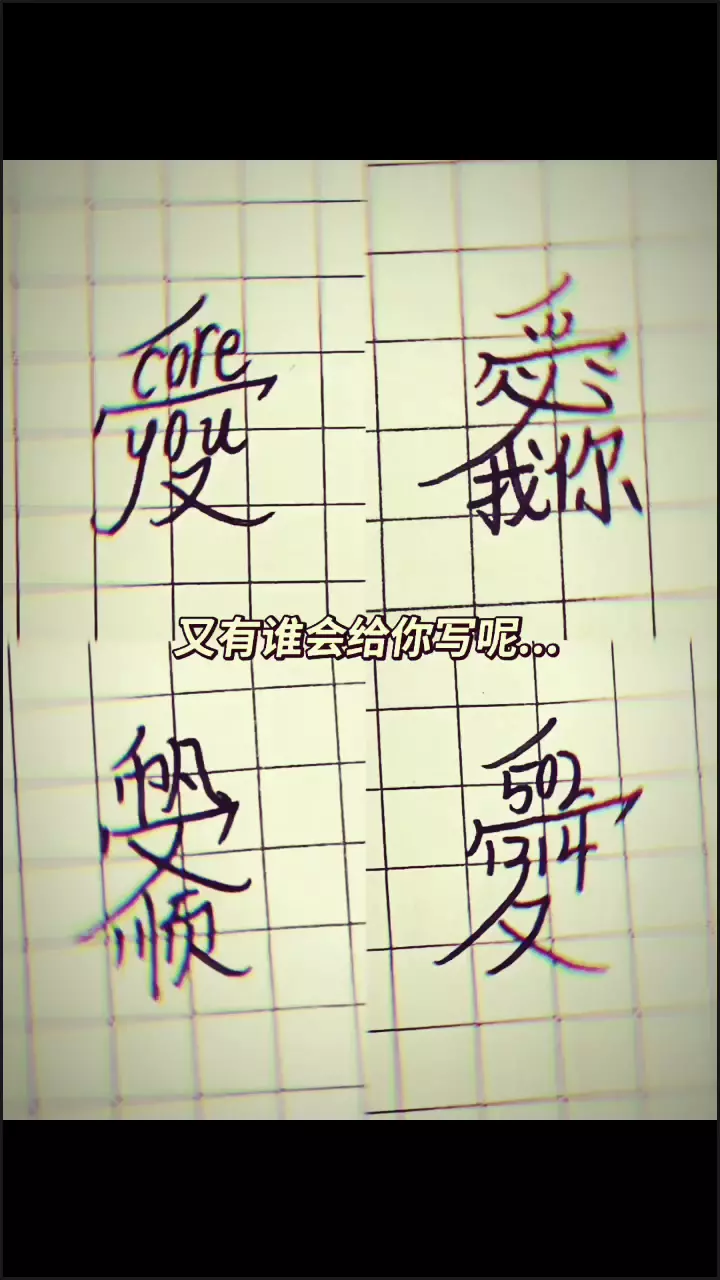 core
you
愛
我你
又有谁会给你写呢...
帆
顺
502
1314